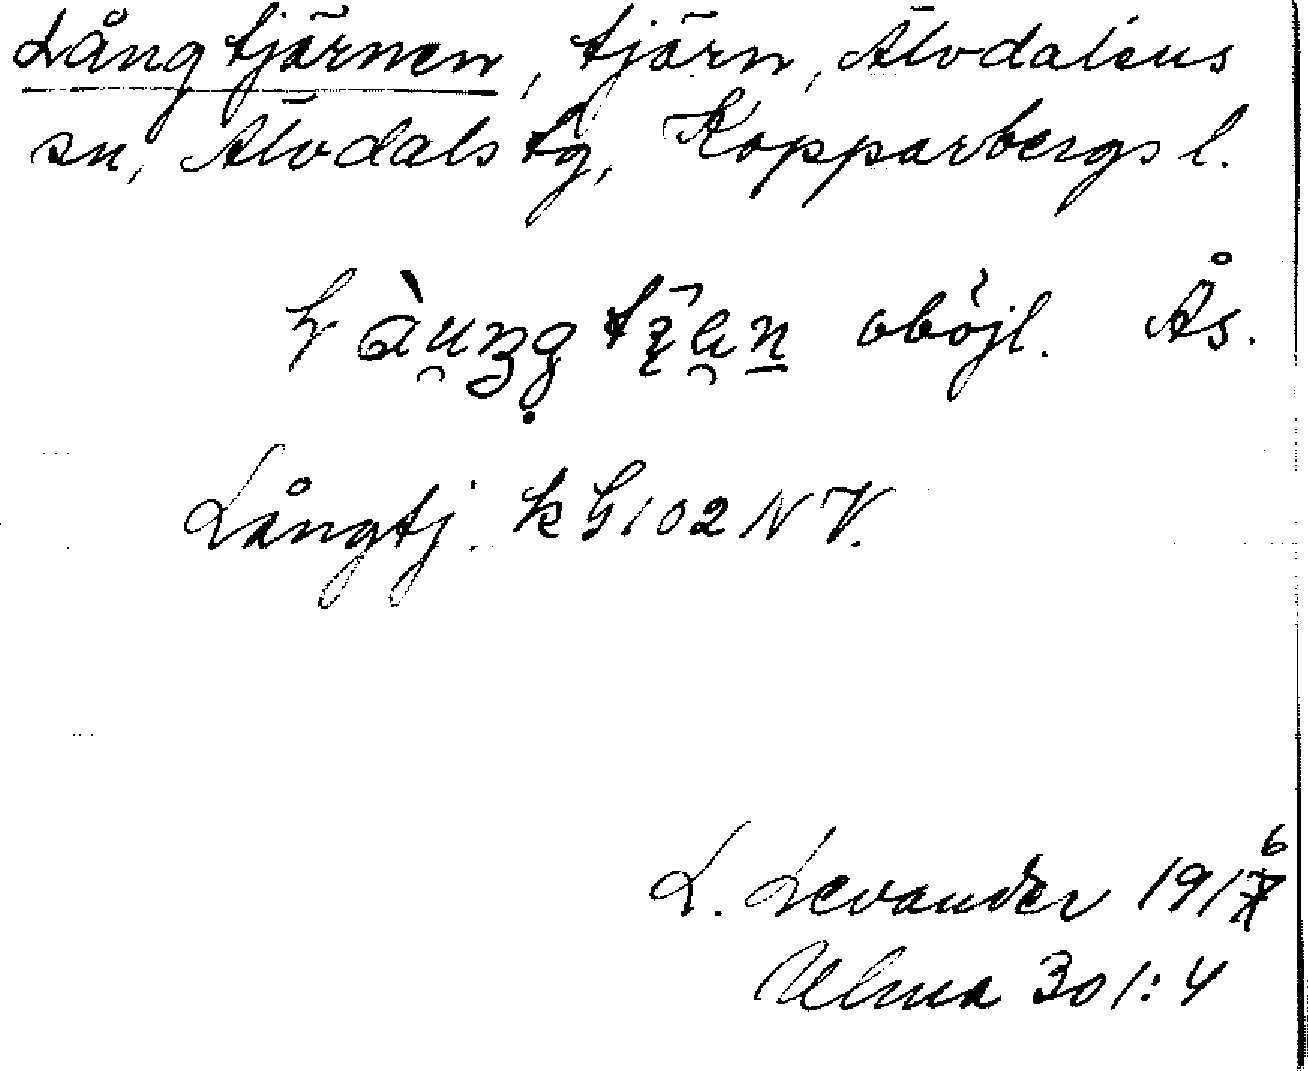 Långtjärnen, tjärn, Älvdalens
sn, Älvdals tg, Kopparbergs l.
oböjl. Ås.
Långtj. k G 102 NV.
L. Levander 1916
Ulma 301:4